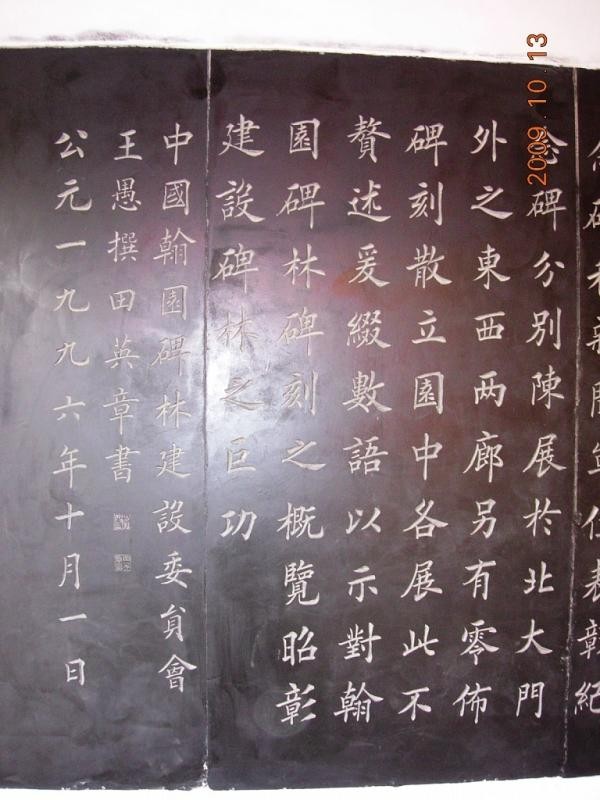 表彰紀
念碑分别陳展於北大門
外之東西两廊另有零佈
碑刻散立園中各展此不
贅述爰綴數語以示對翰
園碑林碑刻之概覽昭彰
建設碑林之巨功
中國翰園碑林建設委員會
王愚撰田英章書
公元一九九六年十月一日
2009.10.13